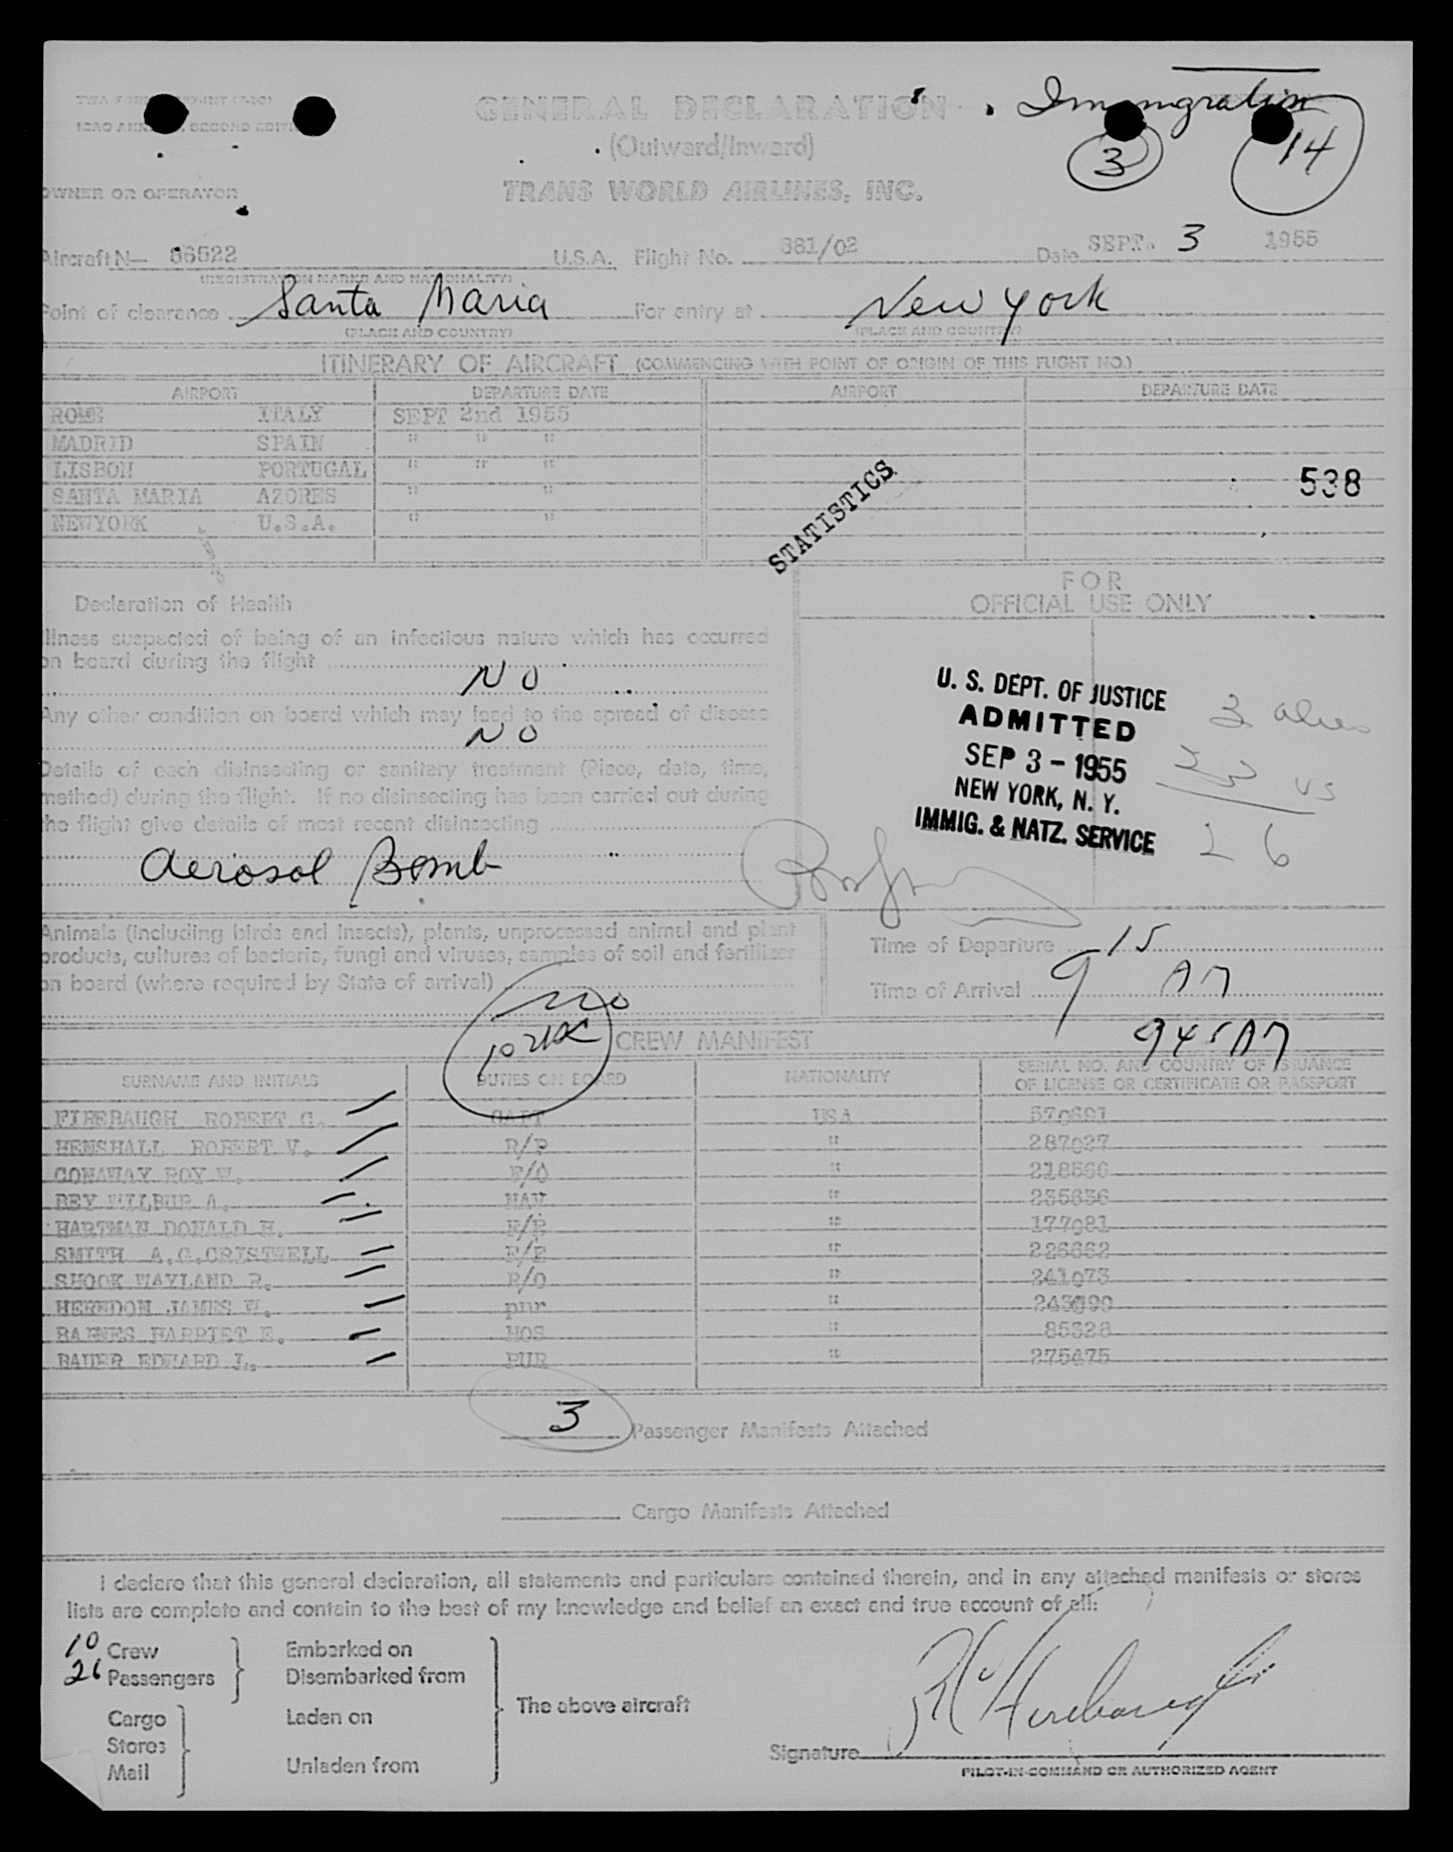 GENERAL DECLARATION
Immigration
(Outward/Inward)
3
14
TRANS WORLD AIRLINES, INC.
OWNER OR OPERATOR
Aircraft N— 86522 U.S.A. Flight No. 881/02 Date SEPT. 3 1955
(REGISTRATION MARKS AND NATIONALITY)
Point of clearance Santa Maria For entry at New York
(PLACE AND COUNTRY) (PLACE AND COUNTRY)
ITINERARY OF AIRCRAFT (COMMENCING WITH POINT OF ORIGIN OF THIS FLIGHT NO.)
AIRPORT DEPARTURE DATE AIRPORT DEPARTURE DATE
ROME ITALY SEPT 2nd 1955
MADRID SPAIN " " "
LISBON PORTUGAL " " "
SANTA MARIA AZORES " "
NEWYORK U.S.A. " "
538
STATISTICS
FOR
OFFICIAL USE ONLY
Declaration of Health
Illness suspected of being of an infectious nature which has occurred
on board during the flight
NO
Any other condition on board which may lead to the spread of disease
NO
Details of each disinsecting or sanitary treatment (Place, date, time,
method) during the flight. If no disinsecting has been carried out during
the flight give details of most recent disinsecting
Aerosol Bomb
U. S. DEPT. OF JUSTICE
ADMITTED
SEP 3 - 1955
NEW YORK, N. Y.
IMMIG. & NATZ. SERVICE
3
23 US
26
Animals (including birds and insects), plants, unprocessed animal and plant
products, cultures of bacteria, fungi and viruses, samples of soil and fertilizer
on board (where required by State of arrival)
no
Time of Departure
Time of Arrival 915 AM
945AM
CREW MANIFEST
SURNAME AND INITIALS DUTIES ON BOARD NATIONALITY SERIAL NO. AND COUNTRY OF ISSUANCE
OF LICENSE OR CERTIFICATE OR PASSPORT
FIREBAUGH ROBERT C. CAPT USA 570691
HENSHALL ROBERT V. R/P " 287027
CONAWAY ROY W. F/O " 218566
BEY WILBUR A. NAV " 235636
HARTMAN DONALD H. F/E " 177081
SMITH A.C.CRISTWELL F/E " 226662
SHOOK WAYLAND R. R/O " 241073
HERNDON JAMES W. pur "
BARNES HARRIET E. HOS " 85328
BAUER EDWARD J. PUR " 275475
3 Passenger Manifests Attached
Cargo Manifests Attached
I declare that this general declaration, all statements and particulars contained therein, and in any attached manifests or stores
lists are complete and contain to the best of my knowledge and belief an exact and true account of all:
10 Crew Embarked on
26 Passengers Disembarked from
The above aircraft
Cargo Laden on
Stores
Mail Unladen from
Signature R C Firebaugh
PILOT-IN-COMMAND OR AUTHORIZED AGENT